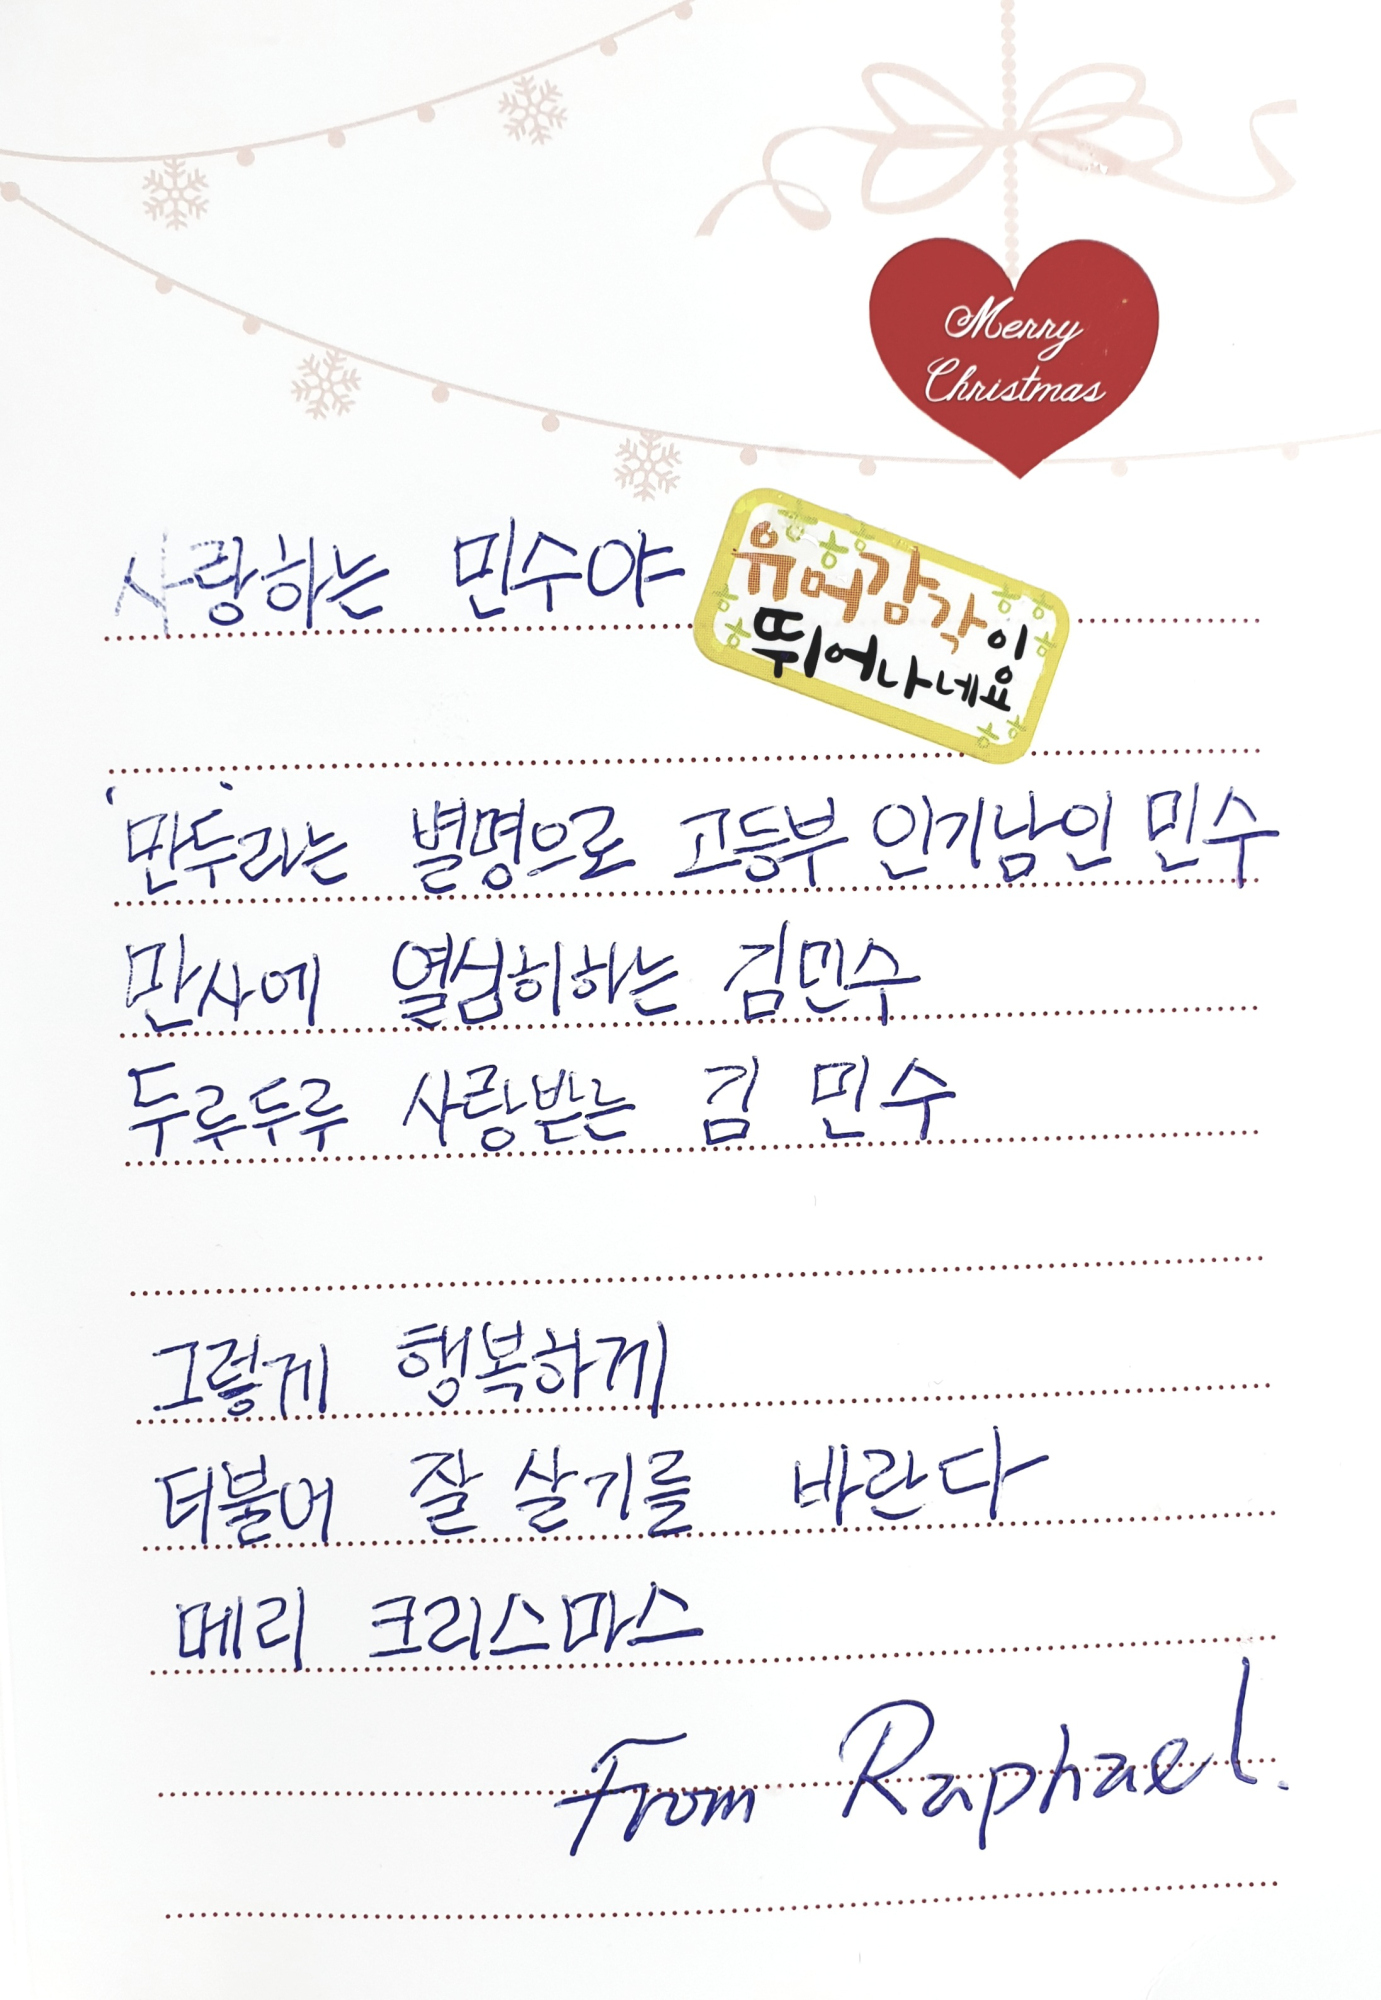 Merry
Christmas
사랑하는 민수야
유머감각이
뛰어나네요
'만두'라는 별명으로 고등부 인기남인 민수
만사에 열심히하는 김민수
두루두루 사랑받는 김 민수
그렇게 행복하게
더불어 잘 살기를 바란다
메리 크리스마스
From Raphael.